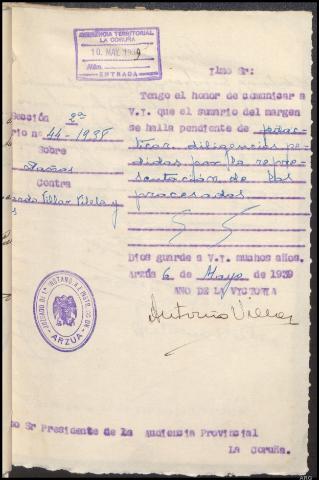 AUDIENCIA TERRITORIAL
LA CORUÑA
10 MAY. 1939
Núm.
ENTRADA
Ilmo Sr:
Tengo el honor de comunicar a
V.I. que el sumario del margen
se halla pendiente de
diligencias pe-
didas por la repre-
sentación de los
procesados
Dios guarde a V.I. muchos años.
Arzúa 6 de Mayo de 1939
AÑO DE LA VICTORIA
Antonio
Sección 2ª
rio nº 44-1938
Sobre
Daños
Contra
Villar Vilela y
ARZUA
mo Sr Presidente de la Audiencia Provincial
La Coruña.